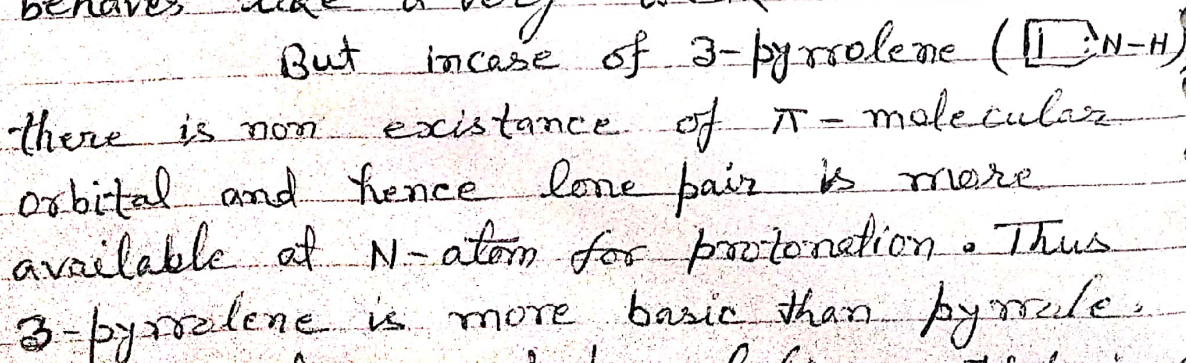 behaves like a very
But incase of 3-pyrrolene ( :N-H)
there is non existance of π - molecular
orbital and hence lone pair is more
available at N-atom for protonation. Thus
3-pyrrolene is more basic than pyrrole.